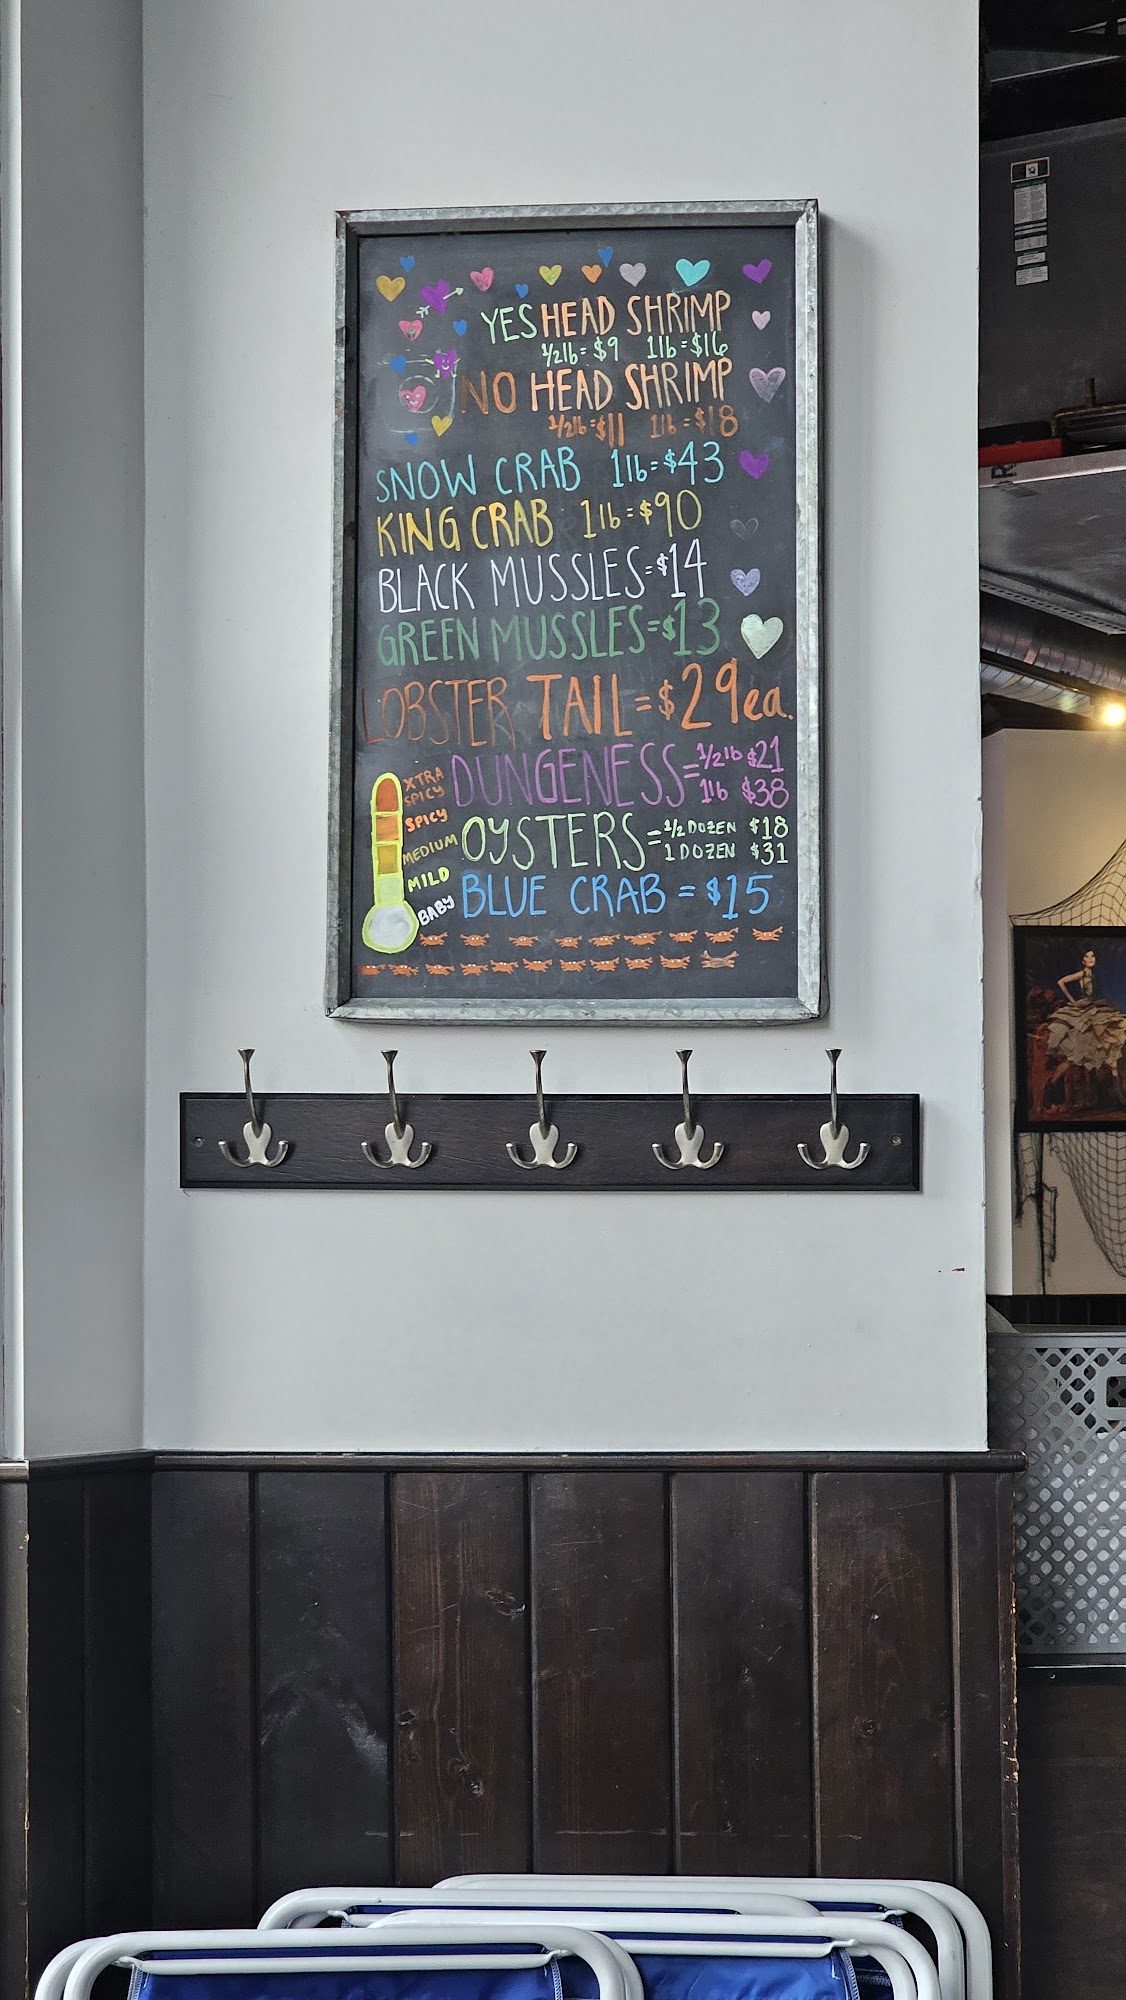 YES HEAD SHRIMP
1/2lb = $9 1lb = $16
NO HEAD SHRIMP
1/2lb = $11 1lb = $18
SNOW CRAB 1lb = $43
KING CRAB 1lb = $90
BLACK MUSSLES = $14
GREEN MUSSLES = $13
LOBSTER TAIL = $29ea.
DUNGENESS = 1/2lb $21
1lb $38
OYSTERS = 1/2 DOZEN $18
1 DOZEN $31
BLUE CRAB = $15
XTRA
SPICY
SPICY
MEDIUM
MILD
BABY